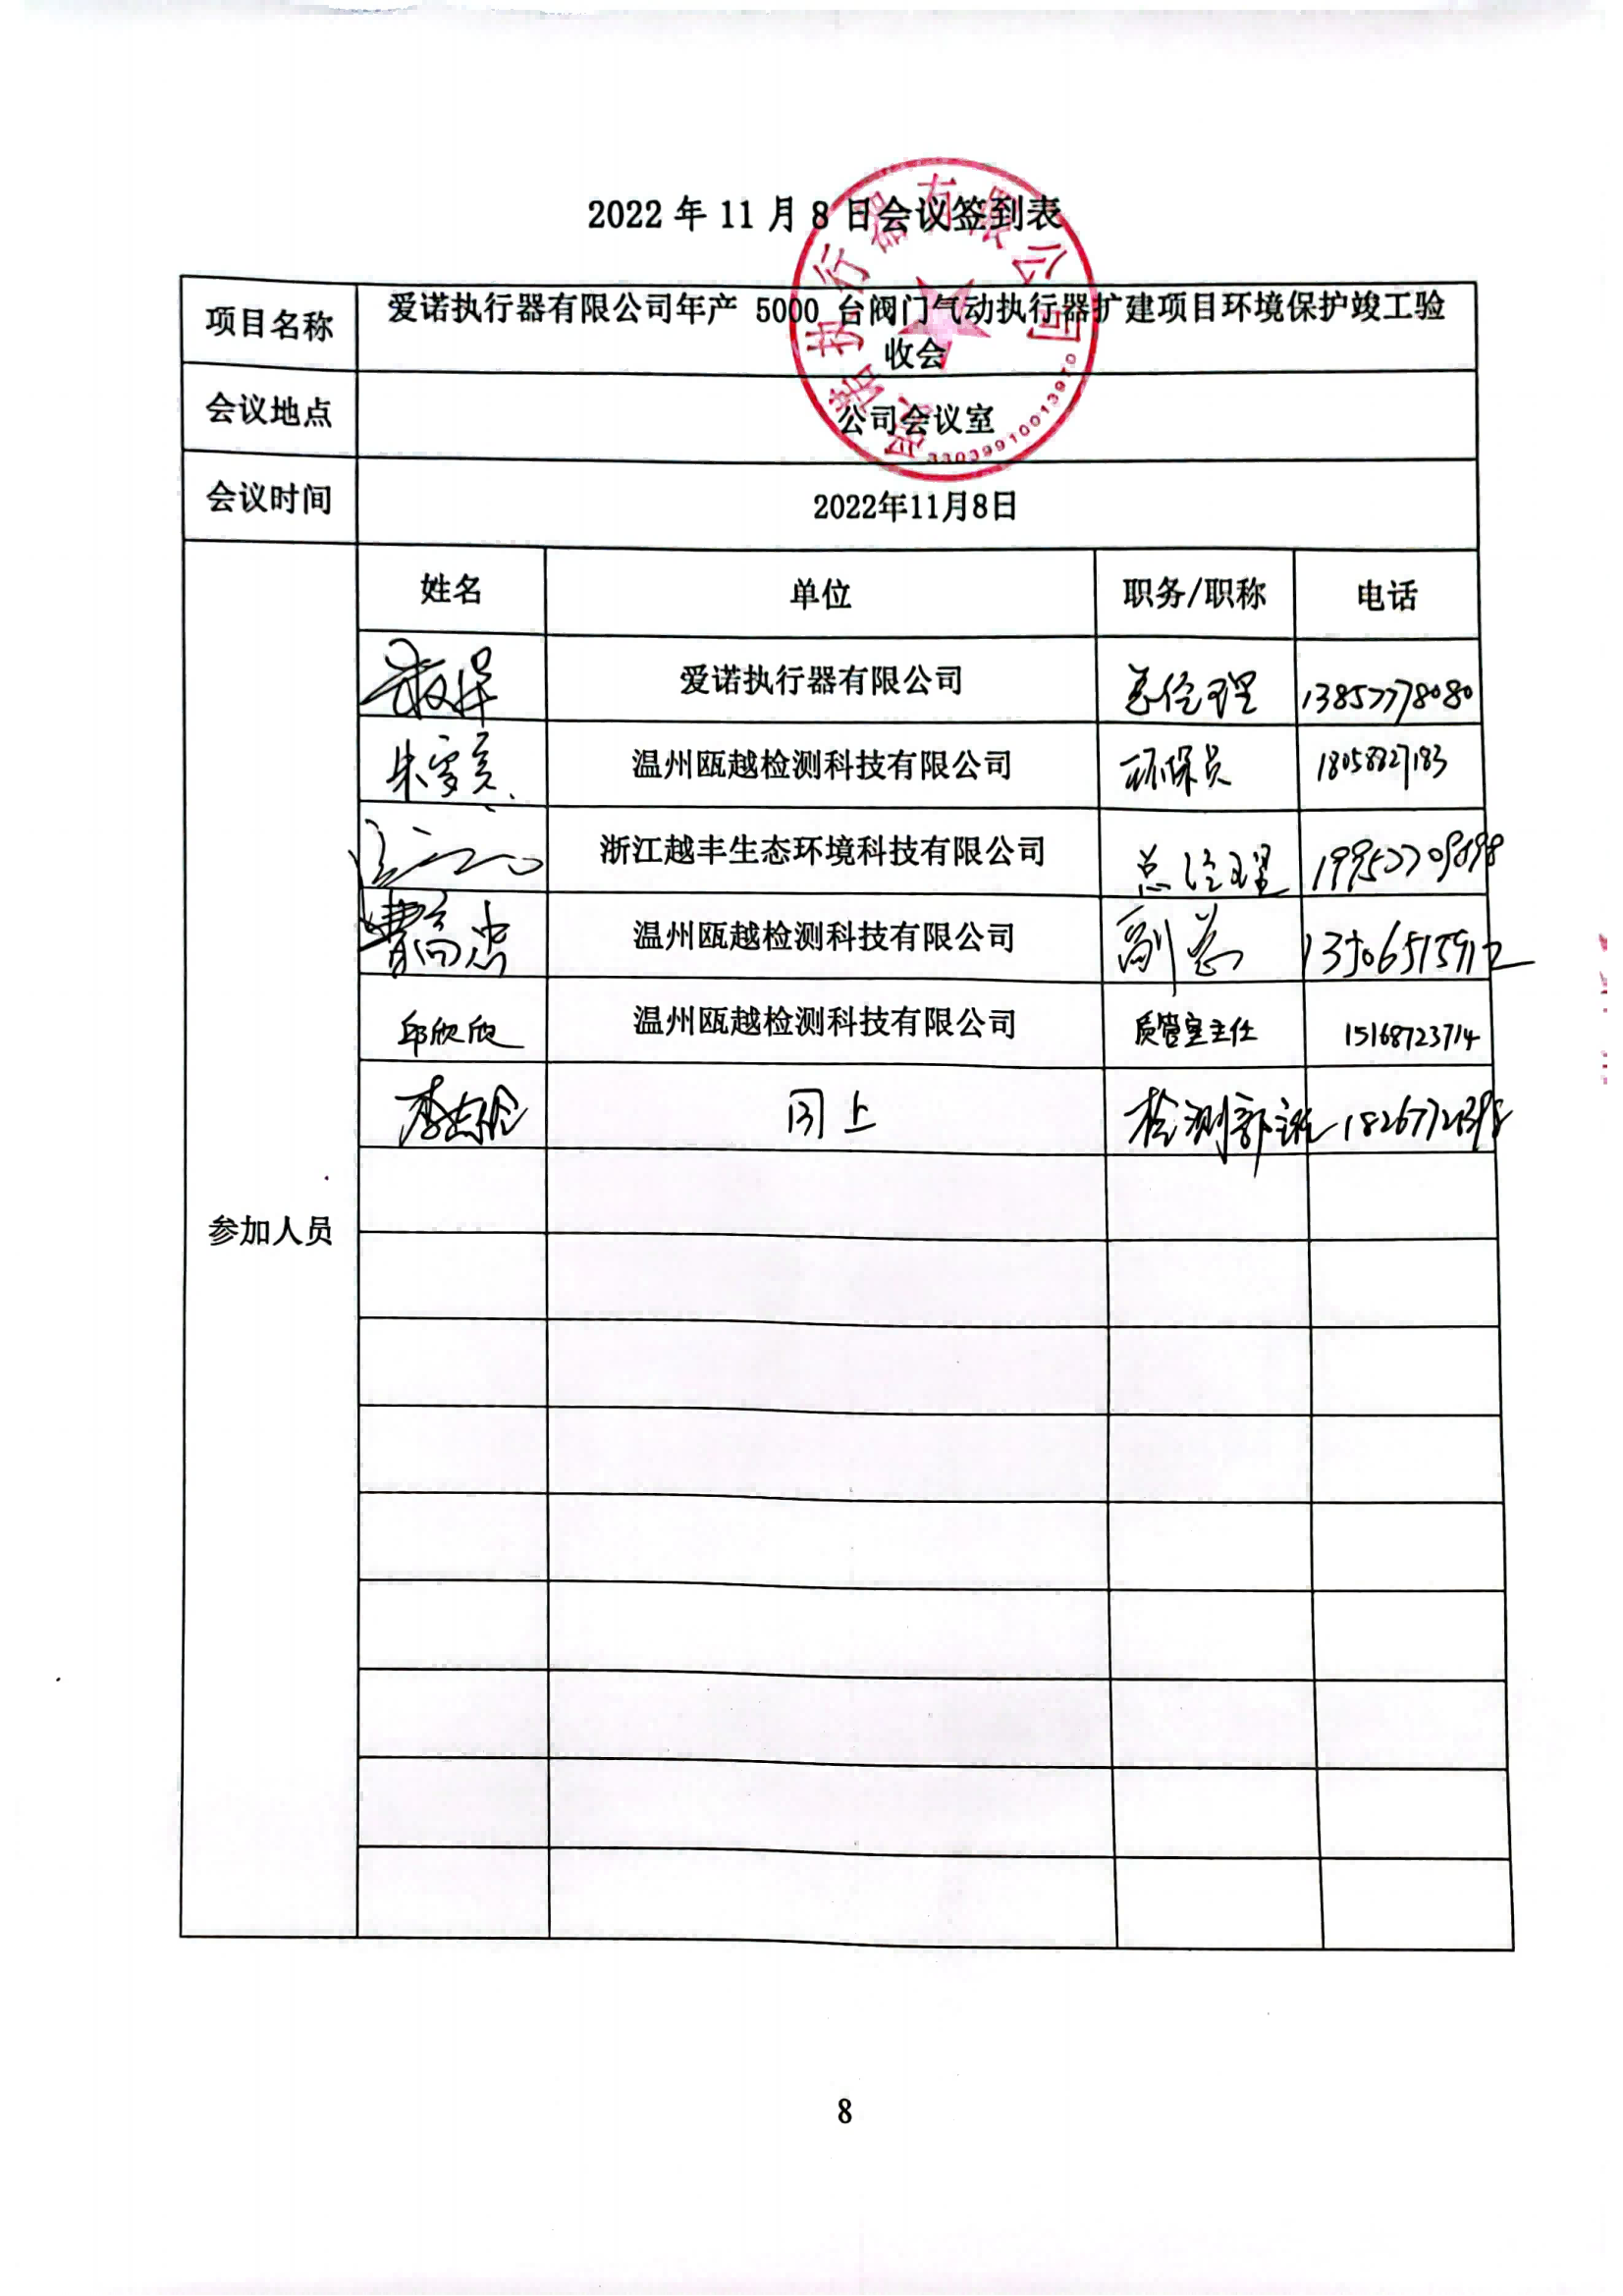 2022 年 11 月 8 日会议签到表
项目名称
爱诺执行器有限公司年产 5000 台阀门气动执行器扩建项目环境保护竣工验
收会
会议地点
公司会议室
会议时间
2022年11月8日
参加人员
姓名 单位 职务/职称 电话
爱诺执行器有限公司 总经理 13857778080
温州瓯越检测科技有限公司 环保员 18058827183
浙江越丰生态环境科技有限公司 总经理
曹高忠 温州瓯越检测科技有限公司 副总
邱欣欣 温州瓯越检测科技有限公司 质管室主任 15168723714
同上 检测部
爱诺执行器有限公司
33039910013970
8